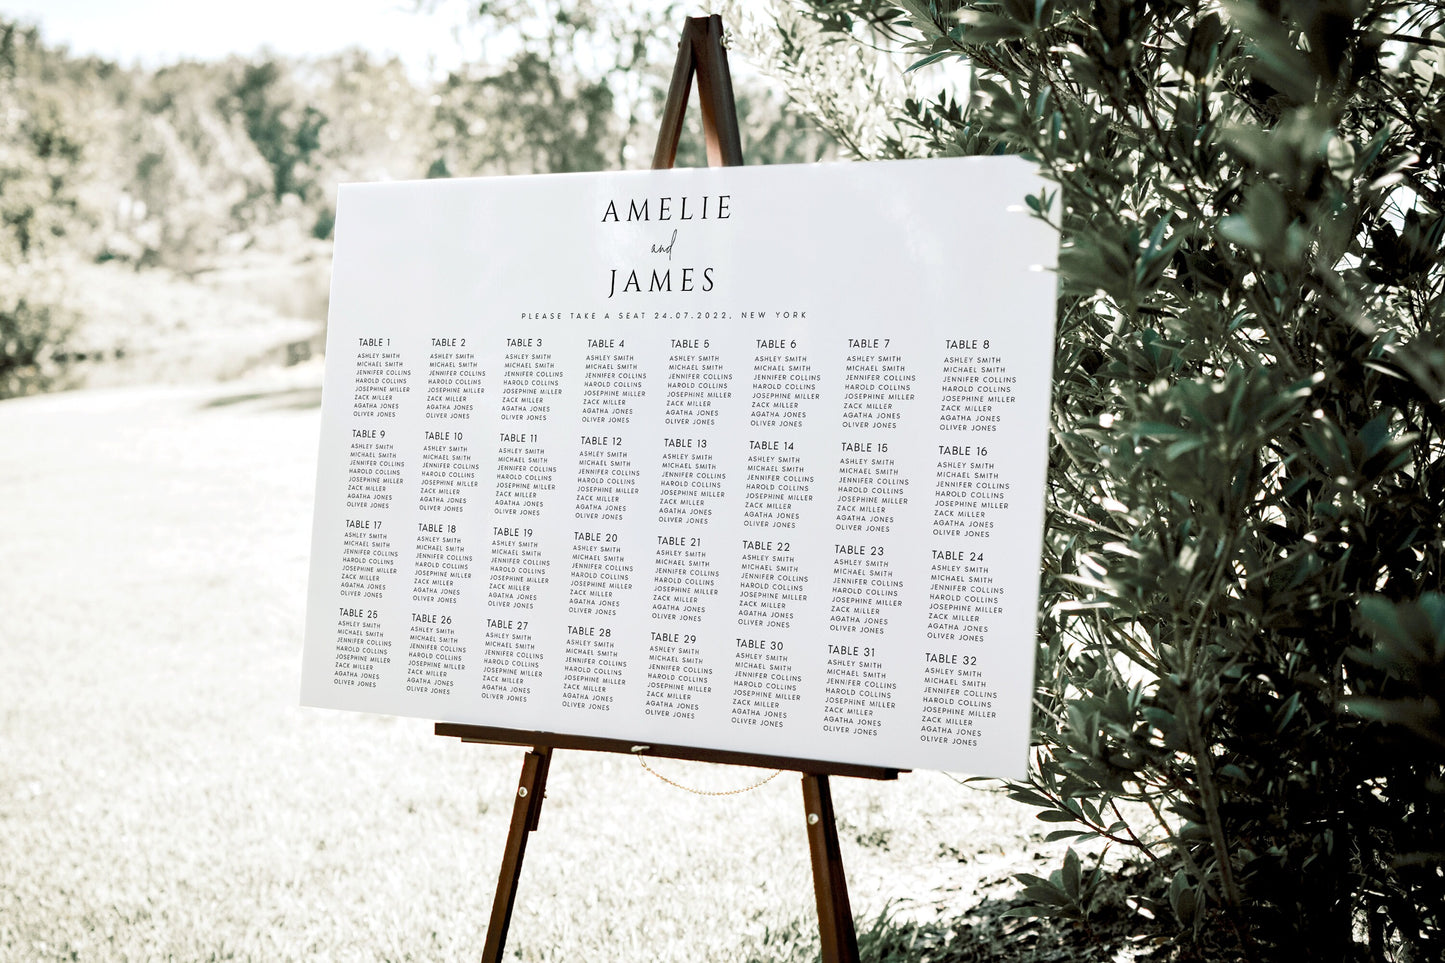 AMELIE
and
JAMES
PLEASE TAKE A SEAT 24.07.2022, NEW YORK
TABLE 1
ASHLEY SMITH
MICHAEL SMITH
JENNIFER COLLINS
HAROLD COLLINS
JOSEPHINE MILLER
ZACK MILLER
AGATHA JONES
OLIVER JONES
TABLE 2
ASHLEY SMITH
MICHAEL SMITH
JENNIFER COLLINS
HAROLD COLLINS
JOSEPHINE MILLER
ZACK MILLER
AGATHA JONES
OLIVER JONES
TABLE 3
ASHLEY SMITH
MICHAEL SMITH
JENNIFER COLLINS
HAROLD COLLINS
JOSEPHINE MILLER
ZACK MILLER
AGATHA JONES
OLIVER JONES
TABLE 4
ASHLEY SMITH
MICHAEL SMITH
JENNIFER COLLINS
HAROLD COLLINS
JOSEPHINE MILLER
ZACK MILLER
AGATHA JONES
OLIVER JONES
TABLE 5
ASHLEY SMITH
MICHAEL SMITH
JENNIFER COLLINS
HAROLD COLLINS
JOSEPHINE MILLER
ZACK MILLER
AGATHA JONES
OLIVER JONES
TABLE 6
ASHLEY SMITH
MICHAEL SMITH
JENNIFER COLLINS
HAROLD COLLINS
JOSEPHINE MILLER
ZACK MILLER
AGATHA JONES
OLIVER JONES
TABLE 7
ASHLEY SMITH
MICHAEL SMITH
JENNIFER COLLINS
HAROLD COLLINS
JOSEPHINE MILLER
ZACK MILLER
AGATHA JONES
OLIVER JONES
TABLE 8
ASHLEY SMITH
MICHAEL SMITH
JENNIFER COLLINS
HAROLD COLLINS
JOSEPHINE MILLER
ZACK MILLER
AGATHA JONES
OLIVER JONES
TABLE 9
ASHLEY SMITH
MICHAEL SMITH
JENNIFER COLLINS
HAROLD COLLINS
JOSEPHINE MILLER
ZACK MILLER
AGATHA JONES
OLIVER JONES
TABLE 10
ASHLEY SMITH
MICHAEL SMITH
JENNIFER COLLINS
HAROLD COLLINS
JOSEPHINE MILLER
ZACK MILLER
AGATHA JONES
OLIVER JONES
TABLE 11
ASHLEY SMITH
MICHAEL SMITH
JENNIFER COLLINS
HAROLD COLLINS
JOSEPHINE MILLER
ZACK MILLER
AGATHA JONES
OLIVER JONES
TABLE 12
ASHLEY SMITH
MICHAEL SMITH
JENNIFER COLLINS
HAROLD COLLINS
JOSEPHINE MILLER
ZACK MILLER
AGATHA JONES
OLIVER JONES
TABLE 13
ASHLEY SMITH
MICHAEL SMITH
JENNIFER COLLINS
HAROLD COLLINS
JOSEPHINE MILLER
ZACK MILLER
AGATHA JONES
OLIVER JONES
TABLE 14
ASHLEY SMITH
MICHAEL SMITH
JENNIFER COLLINS
HAROLD COLLINS
JOSEPHINE MILLER
ZACK MILLER
AGATHA JONES
OLIVER JONES
TABLE 15
ASHLEY SMITH
MICHAEL SMITH
JENNIFER COLLINS
HAROLD COLLINS
JOSEPHINE MILLER
ZACK MILLER
AGATHA JONES
OLIVER JONES
TABLE 16
ASHLEY SMITH
MICHAEL SMITH
JENNIFER COLLINS
HAROLD COLLINS
JOSEPHINE MILLER
ZACK MILLER
AGATHA JONES
OLIVER JONES
TABLE 17
ASHLEY SMITH
MICHAEL SMITH
JENNIFER COLLINS
HAROLD COLLINS
JOSEPHINE MILLER
ZACK MILLER
AGATHA JONES
OLIVER JONES
TABLE 18
ASHLEY SMITH
MICHAEL SMITH
JENNIFER COLLINS
HAROLD COLLINS
JOSEPHINE MILLER
ZACK MILLER
AGATHA JONES
OLIVER JONES
TABLE 19
ASHLEY SMITH
MICHAEL SMITH
JENNIFER COLLINS
HAROLD COLLINS
JOSEPHINE MILLER
ZACK MILLER
AGATHA JONES
OLIVER JONES
TABLE 20
ASHLEY SMITH
MICHAEL SMITH
JENNIFER COLLINS
HAROLD COLLINS
JOSEPHINE MILLER
ZACK MILLER
AGATHA JONES
OLIVER JONES
TABLE 21
ASHLEY SMITH
MICHAEL SMITH
JENNIFER COLLINS
HAROLD COLLINS
JOSEPHINE MILLER
ZACK MILLER
AGATHA JONES
OLIVER JONES
TABLE 22
ASHLEY SMITH
MICHAEL SMITH
JENNIFER COLLINS
HAROLD COLLINS
JOSEPHINE MILLER
ZACK MILLER
AGATHA JONES
OLIVER JONES
TABLE 23
ASHLEY SMITH
MICHAEL SMITH
JENNIFER COLLINS
HAROLD COLLINS
JOSEPHINE MILLER
ZACK MILLER
AGATHA JONES
OLIVER JONES
TABLE 24
ASHLEY SMITH
MICHAEL SMITH
JENNIFER COLLINS
HAROLD COLLINS
JOSEPHINE MILLER
ZACK MILLER
AGATHA JONES
OLIVER JONES
TABLE 25
ASHLEY SMITH
MICHAEL SMITH
JENNIFER COLLINS
HAROLD COLLINS
JOSEPHINE MILLER
ZACK MILLER
AGATHA JONES
OLIVER JONES
TABLE 26
ASHLEY SMITH
MICHAEL SMITH
JENNIFER COLLINS
HAROLD COLLINS
JOSEPHINE MILLER
ZACK MILLER
AGATHA JONES
OLIVER JONES
TABLE 27
ASHLEY SMITH
MICHAEL SMITH
JENNIFER COLLINS
HAROLD COLLINS
JOSEPHINE MILLER
ZACK MILLER
AGATHA JONES
OLIVER JONES
TABLE 28
ASHLEY SMITH
MICHAEL SMITH
JENNIFER COLLINS
HAROLD COLLINS
JOSEPHINE MILLER
ZACK MILLER
AGATHA JONES
OLIVER JONES
TABLE 29
ASHLEY SMITH
MICHAEL SMITH
JENNIFER COLLINS
HAROLD COLLINS
JOSEPHINE MILLER
ZACK MILLER
AGATHA JONES
OLIVER JONES
TABLE 30
ASHLEY SMITH
MICHAEL SMITH
JENNIFER COLLINS
HAROLD COLLINS
JOSEPHINE MILLER
ZACK MILLER
AGATHA JONES
OLIVER JONES
TABLE 31
ASHLEY SMITH
MICHAEL SMITH
JENNIFER COLLINS
HAROLD COLLINS
JOSEPHINE MILLER
ZACK MILLER
AGATHA JONES
OLIVER JONES
TABLE 32
ASHLEY SMITH
MICHAEL SMITH
JENNIFER COLLINS
HAROLD COLLINS
JOSEPHINE MILLER
ZACK MILLER
AGATHA JONES
OLIVER JONES